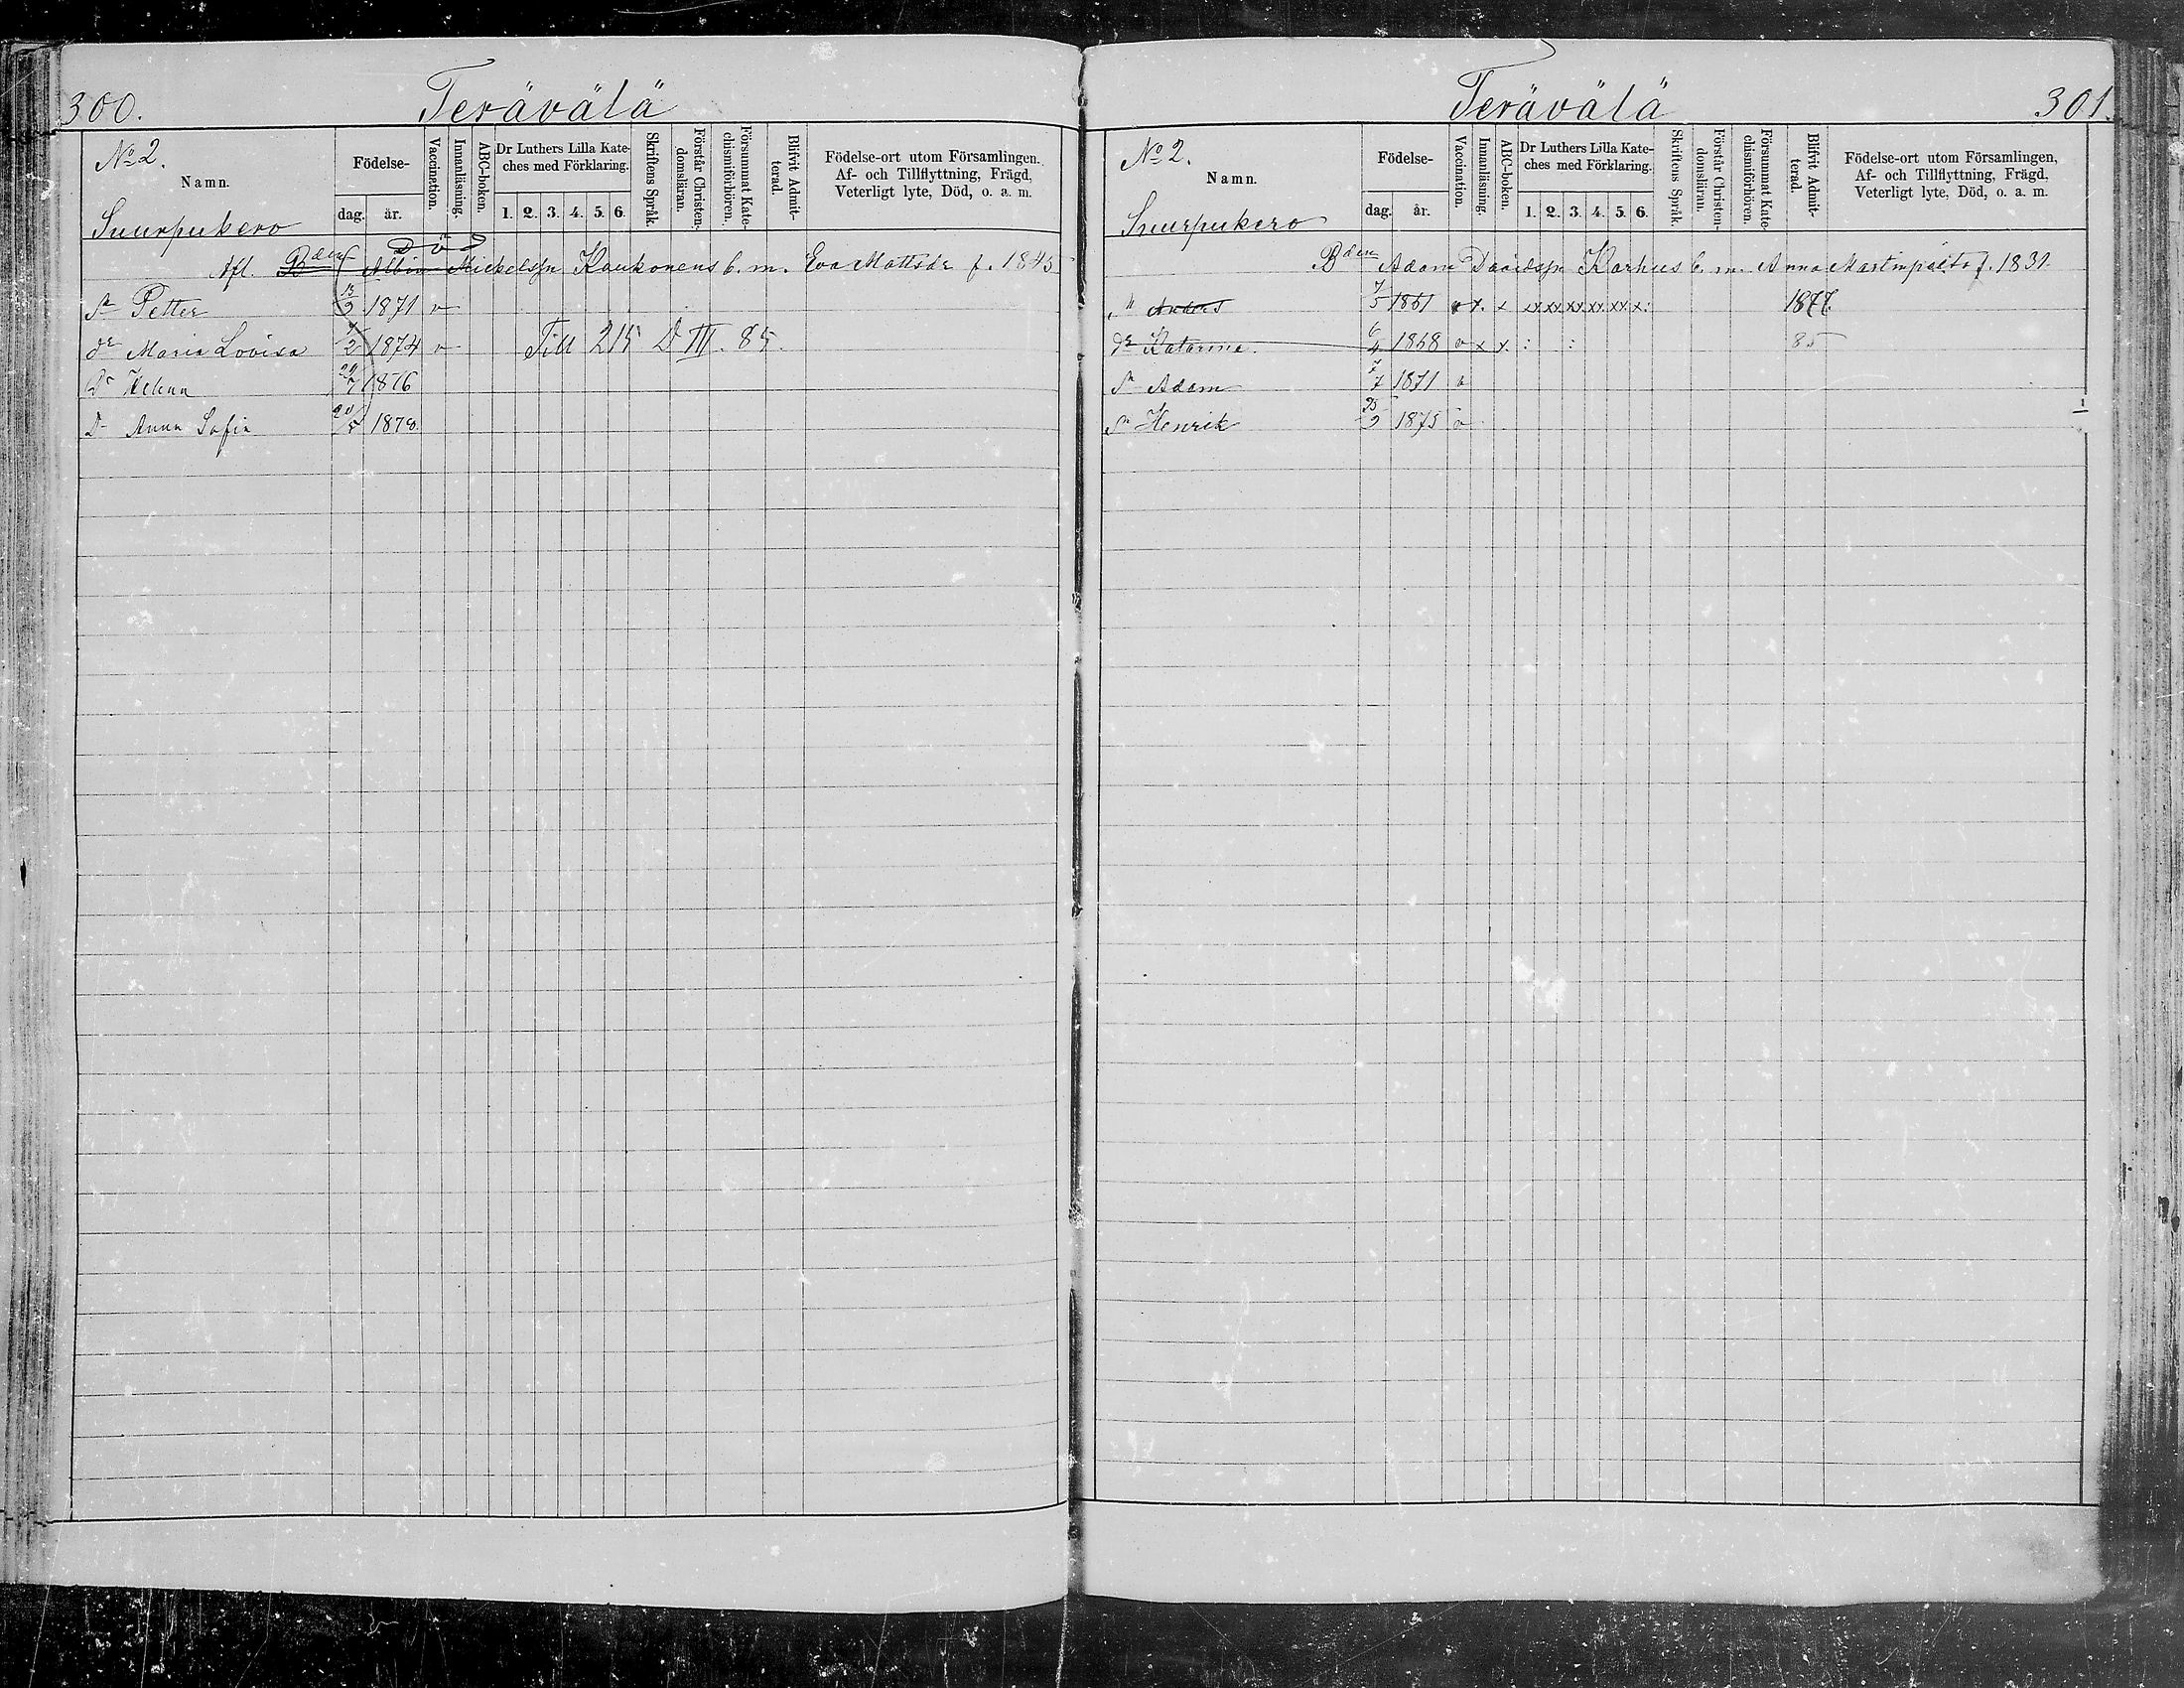 300. Terävälä
No 2.
Namn.
Födelse-
dag. år.
Vaccination.
Innanläsning.
ABC-boken.
Dr Luthers Lilla Kate-
ches med Förklaring.
1. 2. 3. 4. 5. 6.
Skriftens Språk.
Förstår Christen-
domsläran.
Försummat Kate-
chismiförhören.
Blifvit Admit-
terad.
Födelse-ort utom Församlingen.
Af- och Tillflyttning, Frägd,
Veterligt lyte, Död, o. a. m.
Suurpukero
Död
Afl. Bden Albin Mickelssn Kaukonens b. m. Eva Mattsdr f. 1845
Sn Petter 13/9 1871 v
dr Maria Lovisa 7/2 1874 v Till 215 D III. 85.
Dr Helena 29/7 1876
Dr Anna Sofia 20/5 1878
Terävälä 301.
No 2.
Namn.
Födelse-
dag. år.
Vaccination.
Innanläsning.
ABC-boken.
Dr Luthers Lilla Kate-
ches med Förklaring.
1. 2. 3. 4. 5. 6.
Skriftens Språk.
Förstår Christen-
domsläran.
Försummat Kate-
chismiförhören.
Blifvit Admit-
terad.
Födelse-ort utom Församlingen,
Af- och Tillflyttning, Frägd,
Veterligt lyte, Död, o. a. m.
Suurpukero
Bden Adam Davidssn Karhus b. m. Anna f. 1831.
" Anders 7/5 1861 v x. x xx xx xx xx xx x: 1877.
dr Katarina. 6/4 1868 v x x. : : 85
Sn Adam 7/7 1871 v
Sn Henrik 25/9 1875 v